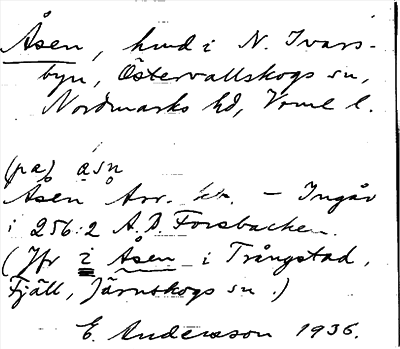 Åsen, hmd i N. Ivars-
byn, Östervallskogs sn,
Nordmarks hd, Vrml l.
(pa) åsn
Åsen Arr. – Ingår
i 256:2 A.D. Forsbacken.
(Jfr i Åsen i Trångstad,
Fjäll, Järnskogs sn.)
E. Andersson 1936.